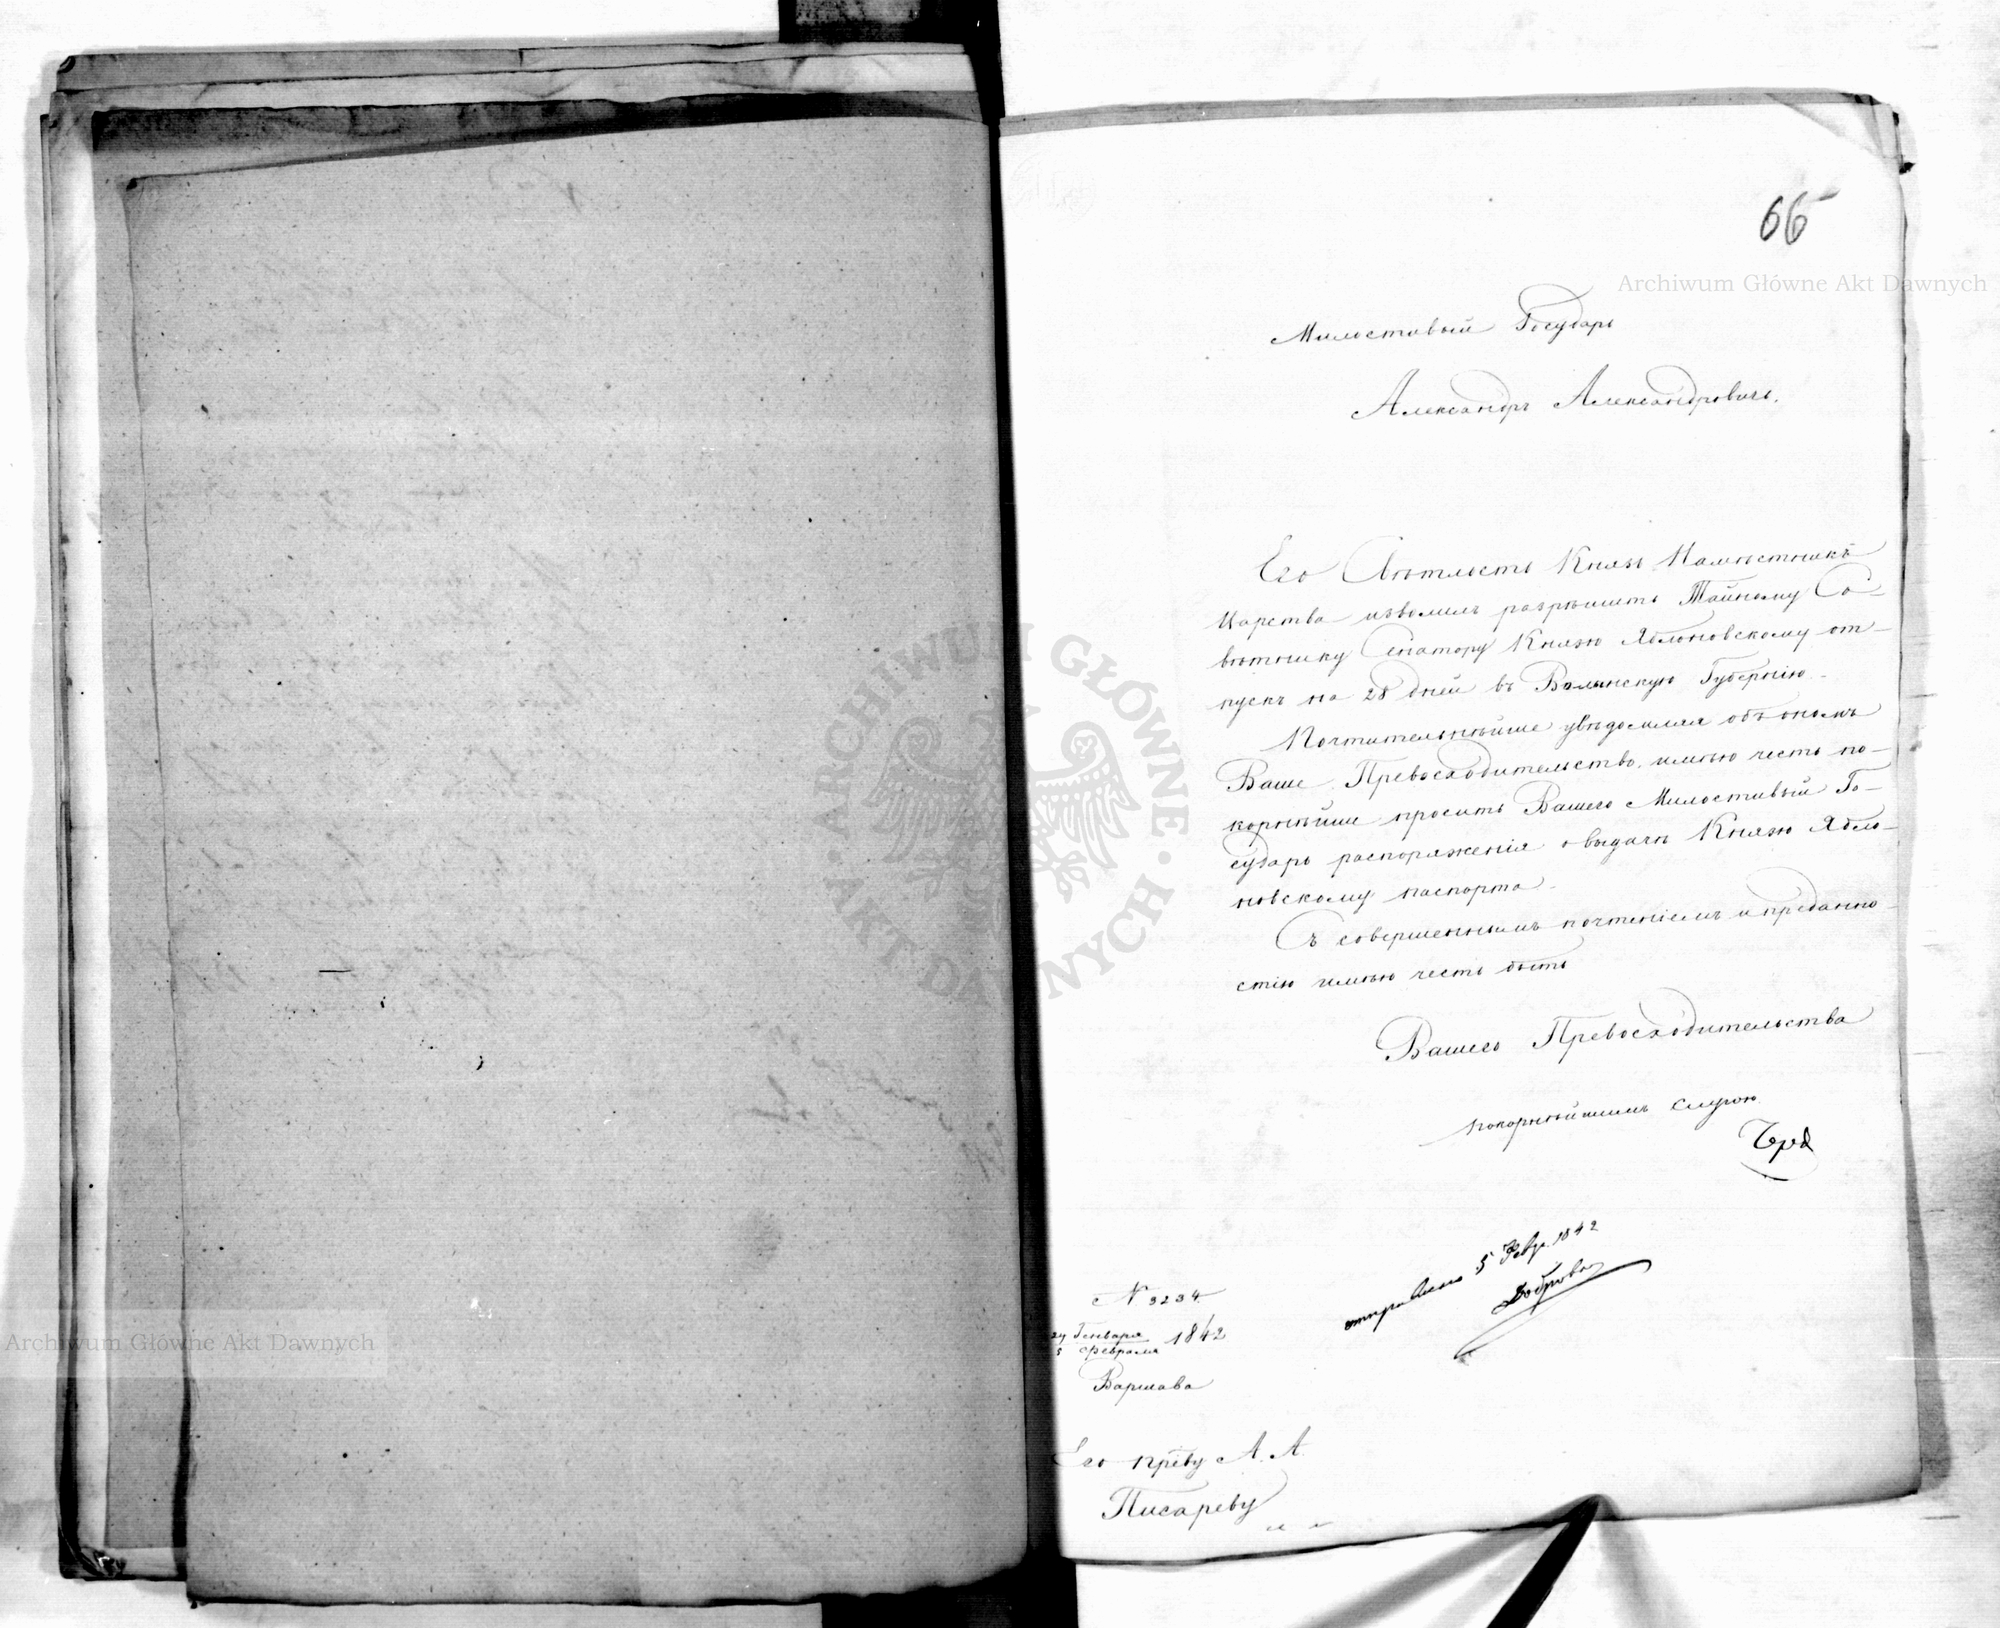 66
Милостивый Государь
Александръ Александровичъ.
Его Свѣтлость Князь Намѣстникъ
Царства изволилъ разрѣшить Тайному Со-
вѣтнику Сенатору Князю Яблоновскому от-
пускъ на 28 дней въ Волынскую Губернію.
Почтительнѣйше увѣдомляя объ ономъ
Ваше Превосходительство, имѣю честь по-
корнѣйше просить Вашего Милостивый Го-
сударь распоряженія о выдачѣ Князю Ябло-
новскому паспорта.
Съ совершеннымъ почтеніемъ и преданно-
стію имѣю честь быть
Вашего Превосходительства
покорнѣйшимъ слугою
отправлено 5 Февр. 1842
N 3234.
24 Генваря
5 Февраля 1842
Варшава
Его прев֮у А. А.
Писареву
Archiwum Główne Akt Dawnych
Archiwum Główne Akt Dawnych
ARCHIWUM GŁÓWNE · AKT DAWNYCH ·